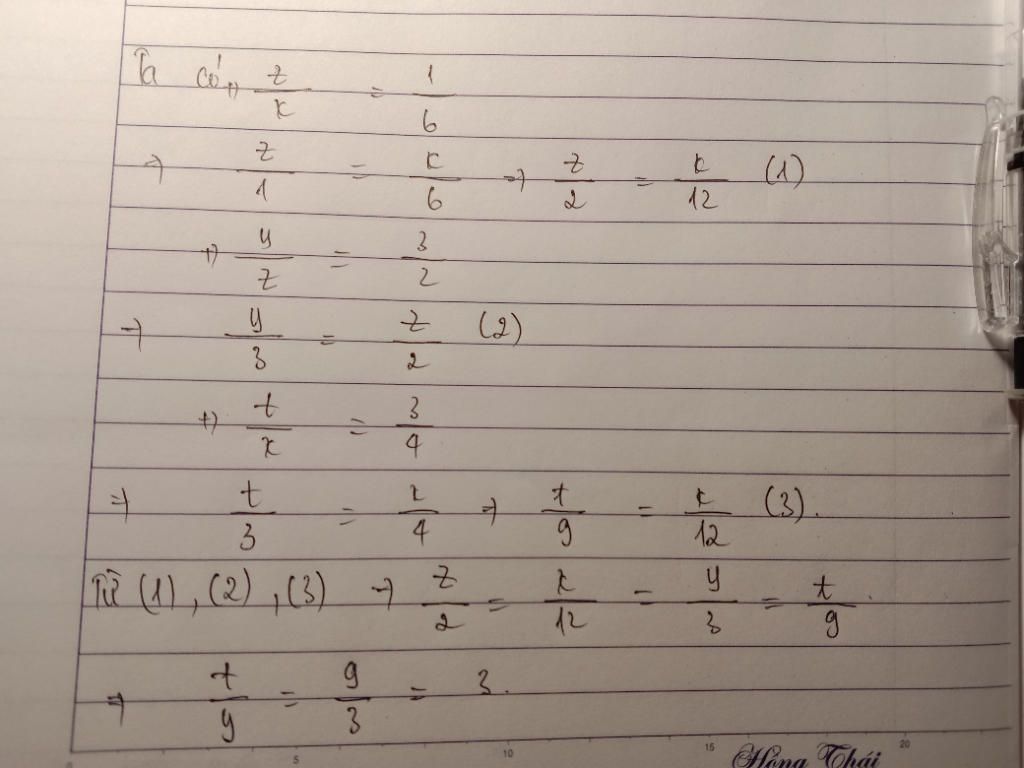 Ta có +) z/x = 1/6
=> z/1 = x/6 => z/2 = x/12 (1)
+) y/z = 3/2
=> y/3 = z/2 (2)
+) t/x = 3/4
=> t/3 = x/4 => t/9 = x/12 (3).
Từ (1), (2), (3) => z/2 = x/12 = y/3 = t/9.
=> t/y = 9/3 = 3.
5 10 15 20
Hồng Thái